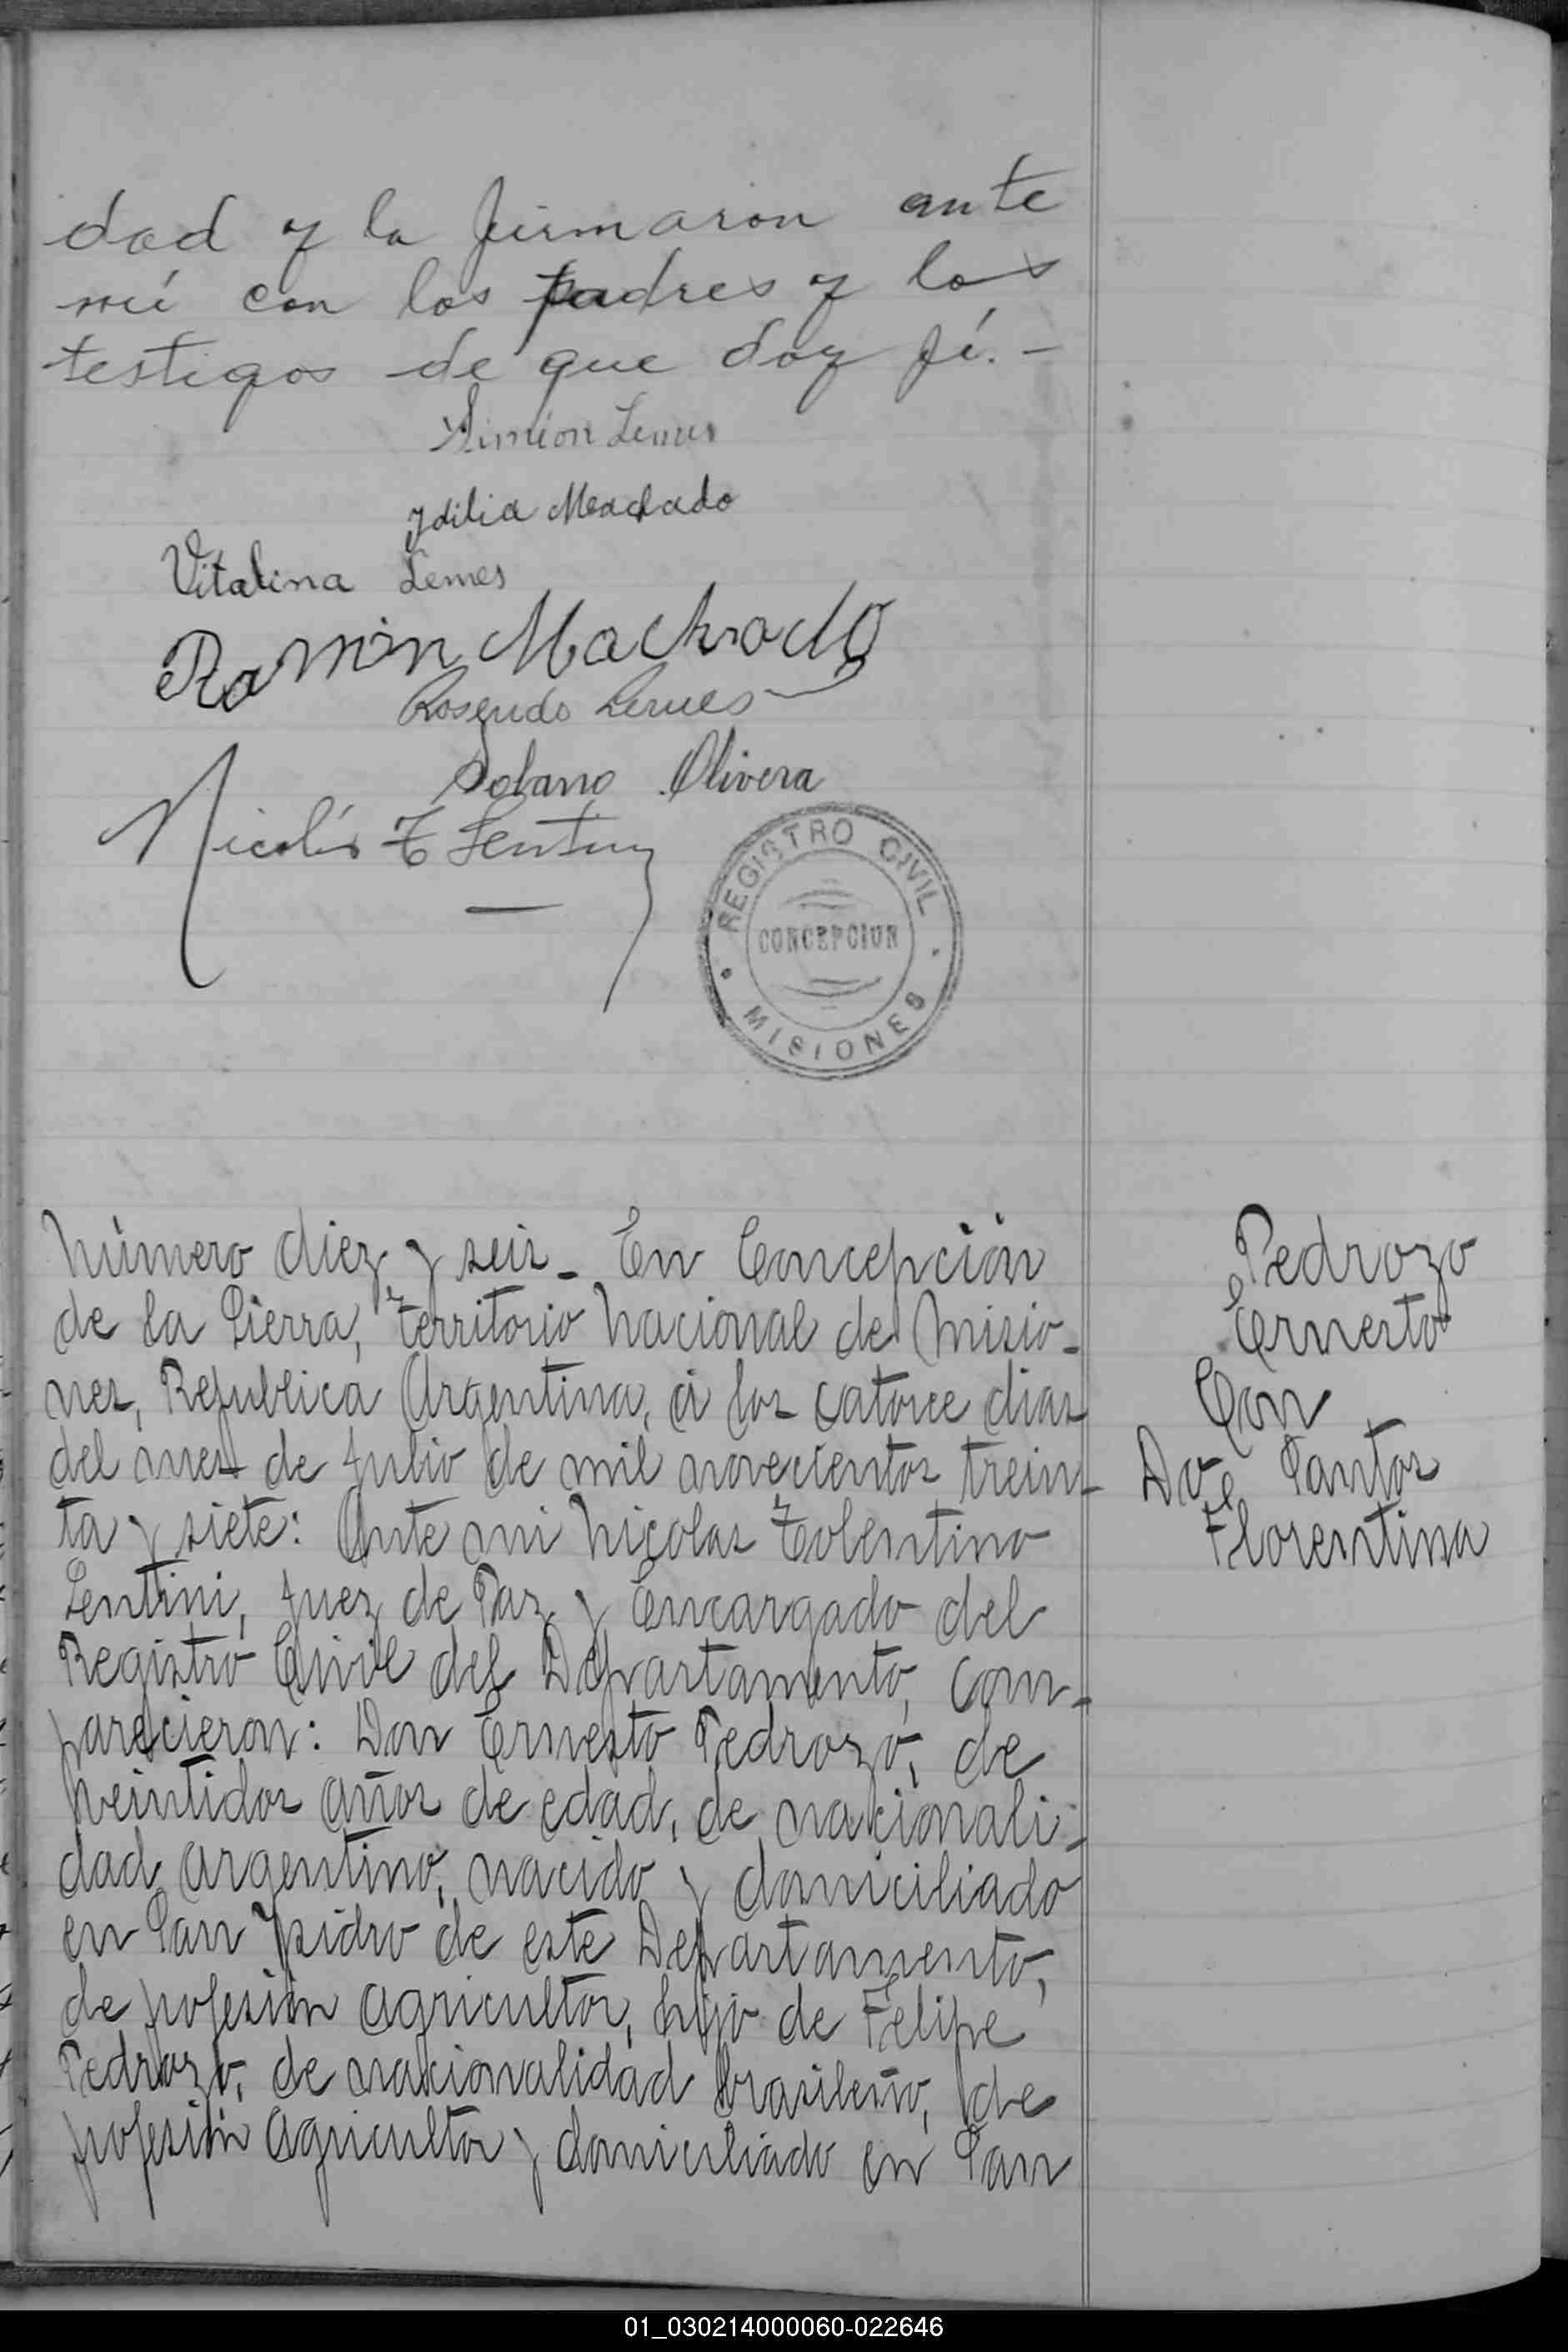 dad y la firmaron ante
mí con los padres y los
testigos de que doy fé. -
Simion Lemes
Ydilia Machado
Vitalina Lemes
Ramón Machado
Rosendo Lemes
Solano Olivera
Nicolás T Lentini
REGISTRO CIVIL
CONCEPCION
MISIONES
Número diez y seis - En Concepción
de la Sierra, Territorio Nacional de Misio-
nes, Republica Argentina, á los catorce dias
del mes de Julio de mil novecientos trein-
ta y siete: Ante mi Nicolas Tolentino
Lentini, Juez de Paz y Encargado del
Registro Civil del Departamento, com-
parecieron: Don Ernesto Pedrozo, de
veintidos años de edad, de nacionali-
dad argentino, nacido y domiciliado
en San Ysidro de este Departamento,
de profesión agricultor, hijo de Felipe
Pedrozo, de nacionalidad brasileño, de
profesión agricultor y domiciliado en San
Pedrozo
Ernesto
Con
Do Santos
Florentina
01_030214000060-022646